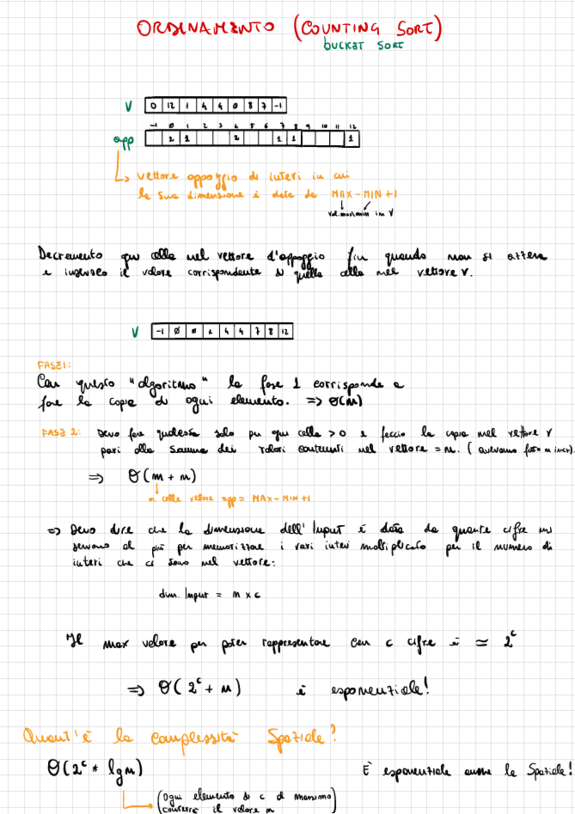 ORDINAMENTO (COUNTING SORT)
bucket sort
V 0 12 1 4 4 0 8 7 -1
-1 0 1 2 3 4 5 6 7 8 9 10 11 12
opp 2 1 2 1 1 1
vettore oppoggio di interi in cui
la sua dimensione è data da MAX-MIN+1
val. max/min in V
Decremento ogni cella nel vettore d'appoggio fin quando non si azzera
e inserisco il valore corrispondente di quella cella nel vettore V.
V -1 0 0 1 4 4 7 8 12
FASE1:
Con questo "algoritmo" la fase 1 corrisponde a
fare la copia di ogni elemento. => Θ(n)
FASE 2: Devo fare qualcosa solo per ogni cella >0 e faccio la copia nel vettore V
pari alla somma dei valori contenuti nel vettore = n. (
=> Θ(m + n)
n. celle vettore opp = MAX-MIN+1
=> Devo dire che la dimensione dell'Input è data da quante cifre mi
servono al più per memorizzare i vari interi moltiplicato per il numero di
interi che ci sono nel vettore:
dim. Input = n x c
Il max valore per poter rappresentare con c cifre è ≃ 2^c
=> Θ(2^c + n) è esponenziale!
Quant'è la complessità Spaziale?
Θ(2^c * lg n) È esponenziale anche la Spaziale!
(Ogni elemento di c al massimo)
(conterrà il valore n